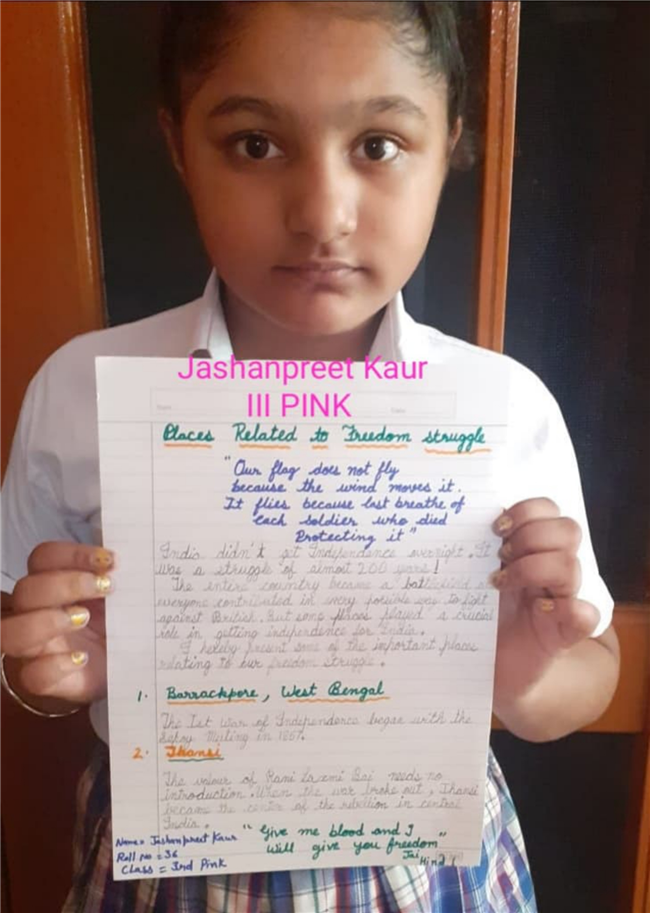 Jashanpreet Kaur
III PINK
Places Related to Freedom struggle
"Our flag does not fly
because the wind moves it.
It flies because last breathe of
each soldier who died
Protecting it"
India didn't get Independence overnight. It
was a struggle of almost 200 years!
The entire country became a battlefield
everyone contributed in every possible way to fight
against British. But some places played a crucial
role in getting independence for India.
I hereby present some of the important places
relating to our freedom struggle.
1. Barrackpore, West Bengal
The Ist War of Independence began with the
in 1857.
2. Jhansi
The valour of Rani Laxmi Bai needs no
introduction. When the war broke out, Jhansi
became the centre of the rebellion in central
India.
"Give me blood and I
will give you freedom"
Jai Hind!
Name = Jashanpreet Kaur
Roll No = 36
Class = 3rd Pink